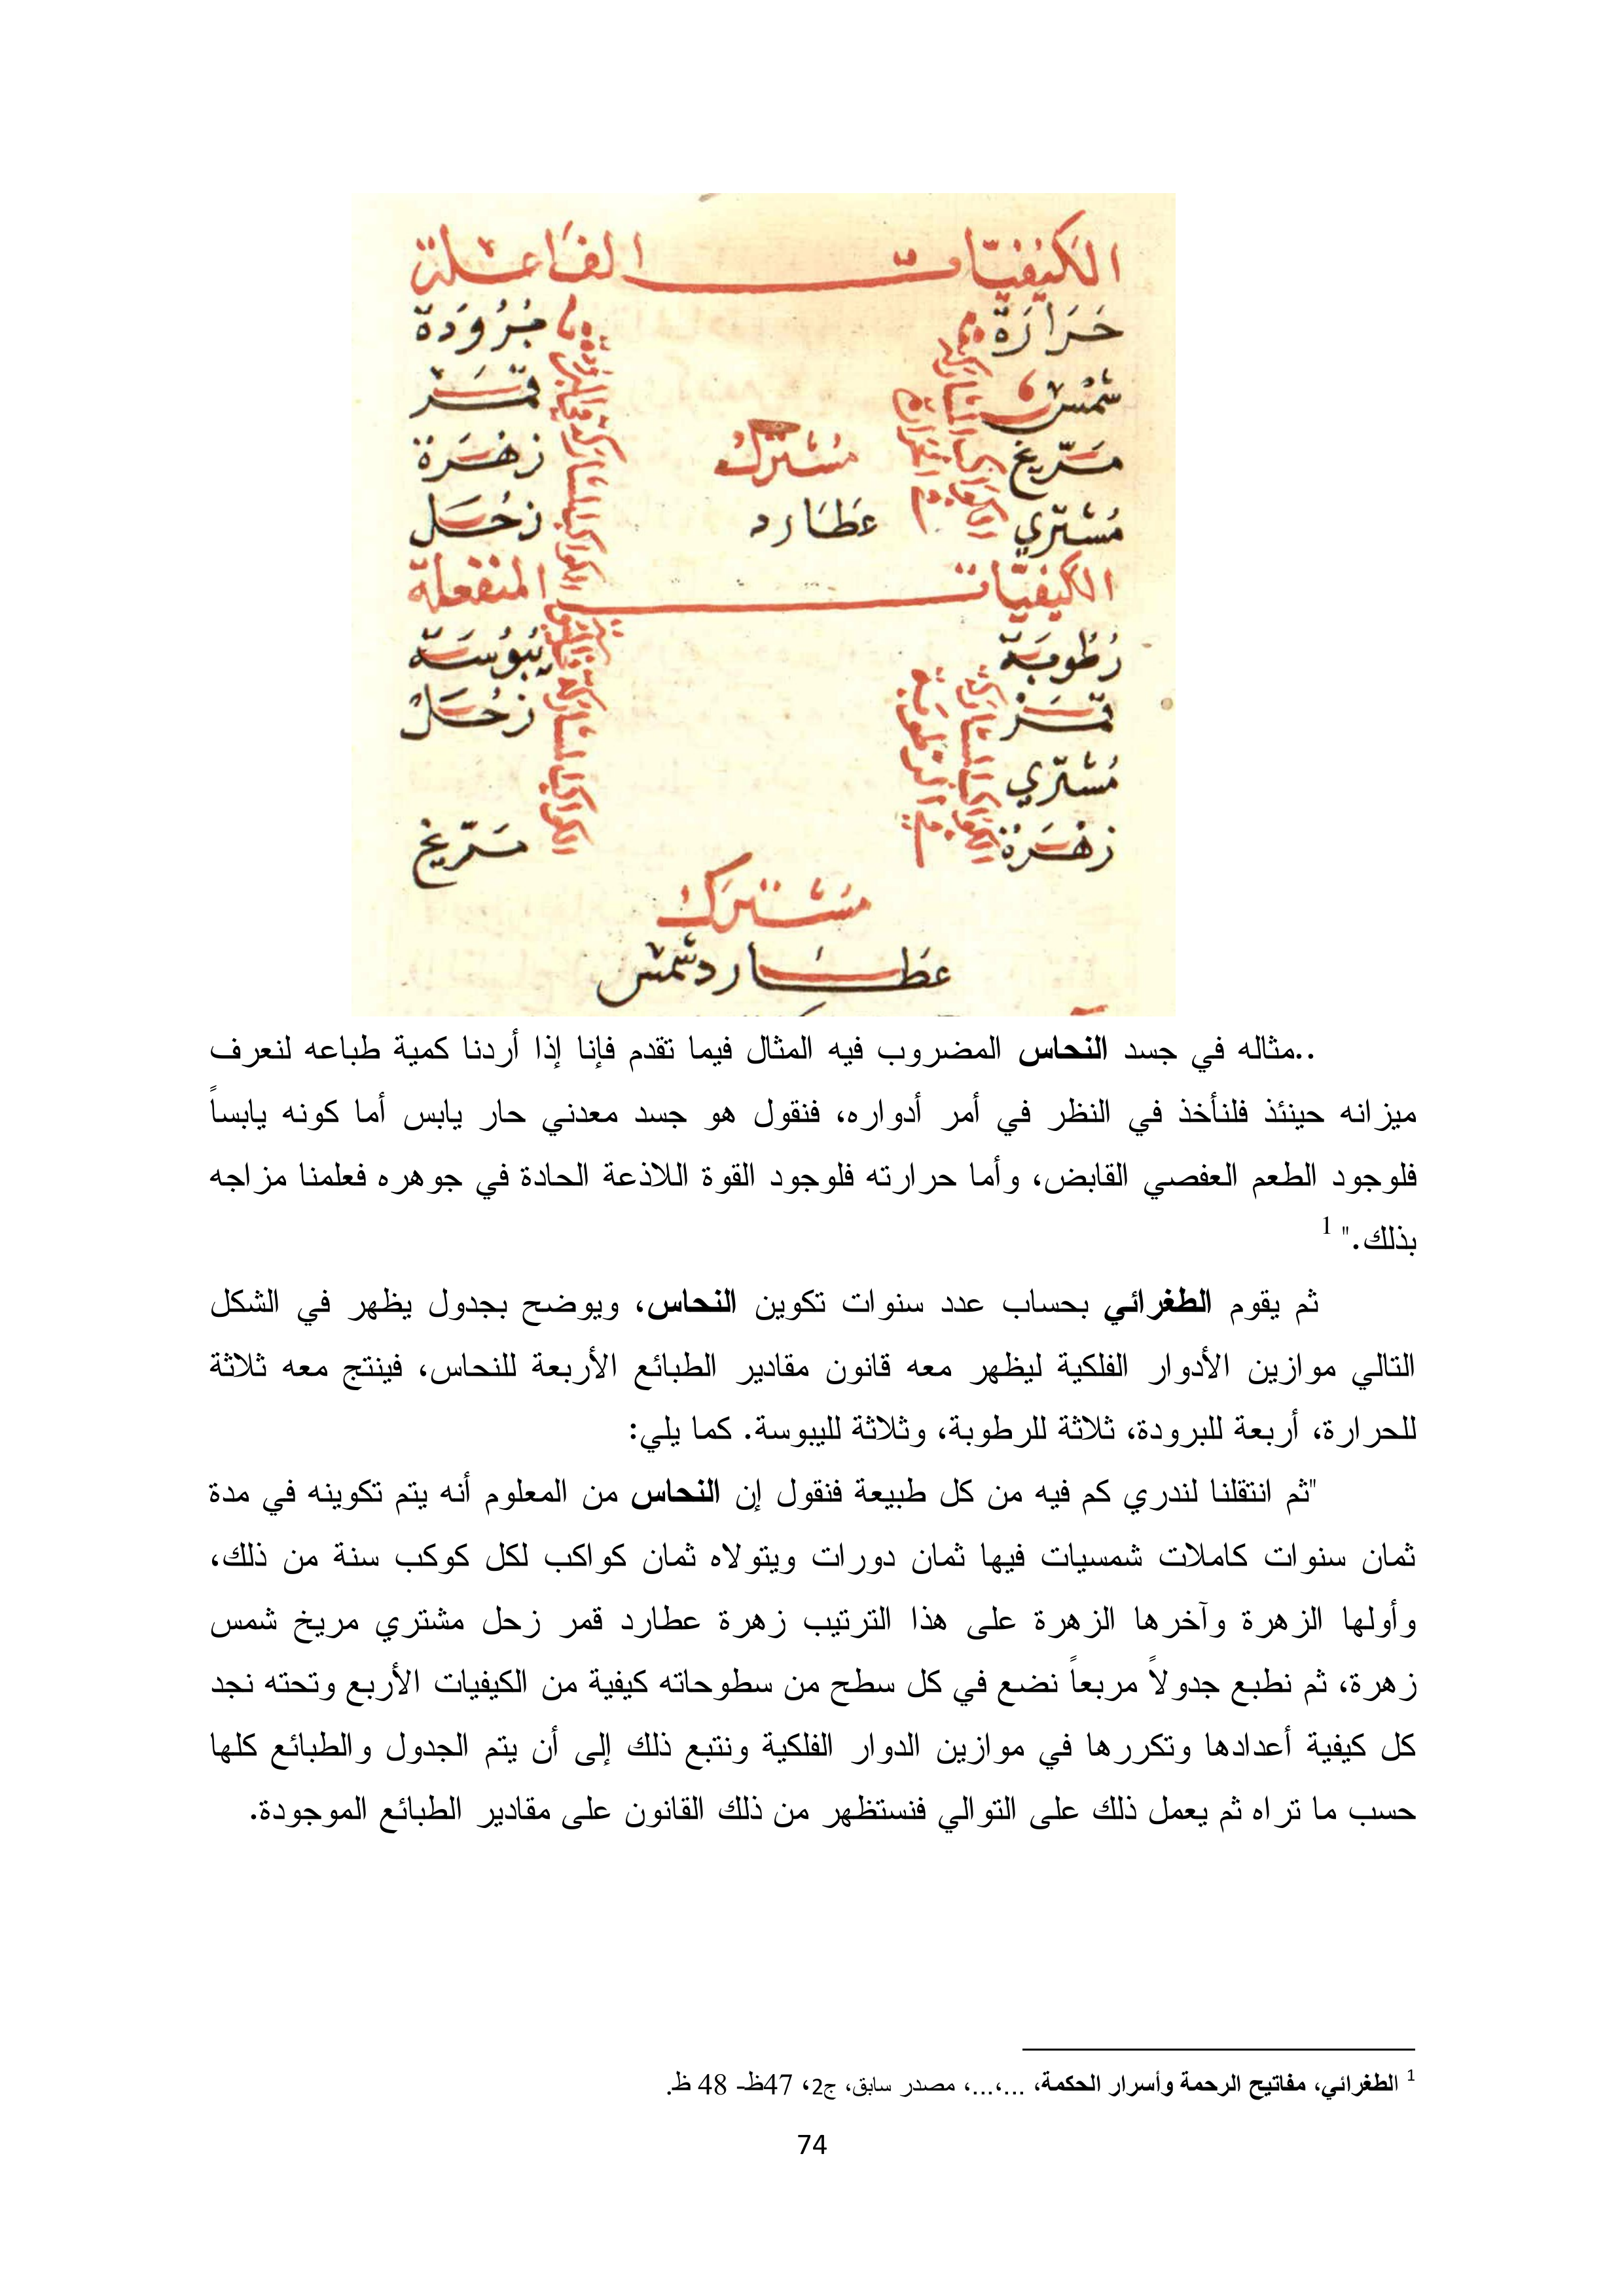 الكيفيّات الفاعلة
حرارة برودة
شمس قمر
مرّيخ مشترك زهرة
مشتري عطارد زحل
الكواكب المشاركة في الحرارة
الكواكب المشاركة في البرودة
الكيفيّات المنفعلة
رطوبة يبوسة
قمر زحل
مشتري
زهرة مرّيخ
الكواكب المشاركة في الرطوبة
الكواكب المشاركة
مشترك
عطارد شمس
..مثاله في جسد النحاس المضروب فيه المثال فيما تقدم فإنا إذا أردنا كمية طباعه لنعرف
ميزانه حينئذ فلنأخذ في النظر في أمر أدواره، فنقول هو جسد معدني حار يابس أما كونه يابساً
فلوجود الطعم العفصي القابض، وأما حرارته فلوجود القوة اللاذعة الحادة في جوهره فعلمنا مزاجه
بذلك." 1
ثم يقوم الطغرائي بحساب عدد سنوات تكوين النحاس، ويوضح بجدول يظهر في الشكل
التالي موازين الأدوار الفلكية ليظهر معه قانون مقادير الطبائع الأربعة للنحاس، فينتج معه ثلاثة
للحرارة، أربعة للبرودة، ثلاثة للرطوبة، وثلاثة لليبوسة. كما يلي:
"ثم انتقلنا لندري كم فيه من كل طبيعة فنقول إن النحاس من المعلوم أنه يتم تكوينه في مدة
ثمان سنوات كاملات شمسيات فيها ثمان دورات ويتولاه ثمان كواكب لكل كوكب سنة من ذلك،
وأولها الزهرة وآخرها الزهرة على هذا الترتيب زهرة عطارد قمر زحل مشتري مريخ شمس
زهرة، ثم نطبع جدولاً مربعاً نضع في كل سطح من سطوحاته كيفية من الكيفيات الأربع وتحته نجد
كل كيفية أعدادها وتكررها في موازين الدوار الفلكية ونتبع ذلك إلى أن يتم الجدول والطبائع كلها
حسب ما تراه ثم يعمل ذلك على التوالي فنستظهر من ذلك القانون على مقادير الطبائع الموجودة.
1 الطغرائي، مفاتيح الرحمة وأسرار الحكمة، ...،...، مصدر سابق، ج2، 47ظ- 48 ظ.
74